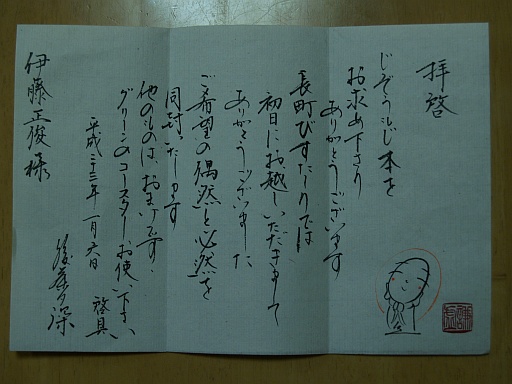 拝啓
じぞうもじ本を
お求め下さり
ありがとうございます
長町びすたーりでは
初日にお越しいただきまして
ありがとうございました
ご希望の偶然と必然を
同封いたします
他のものは、おまけです、
グリーンのコースターお使い下さい、
平成二十三年 一月六日
啓具
伊藤正俊様